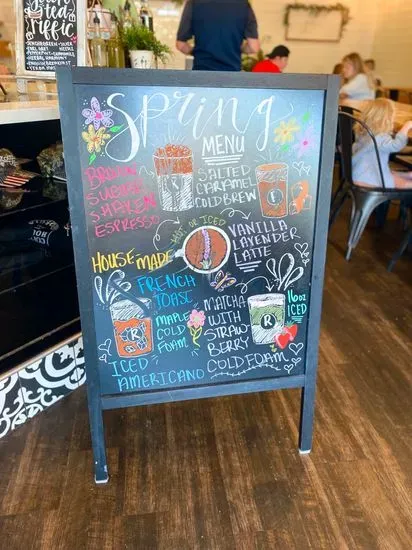 Spring
MENU
BROWN
SUGAR
SHAKEN
ESPRESSO
SALTED
CARAMEL
COLD BREW
HOT OR ICED
HOUSEMADE
VANILLA
LAVENDER
LATTE
FRENCH
TOAST
MAPLE
COLD
FOAM
ICED
AMERICANO
MATCHA
WITH
STRAW-
BERRY
COLD FOAM
16oz
ICED
R
R
R